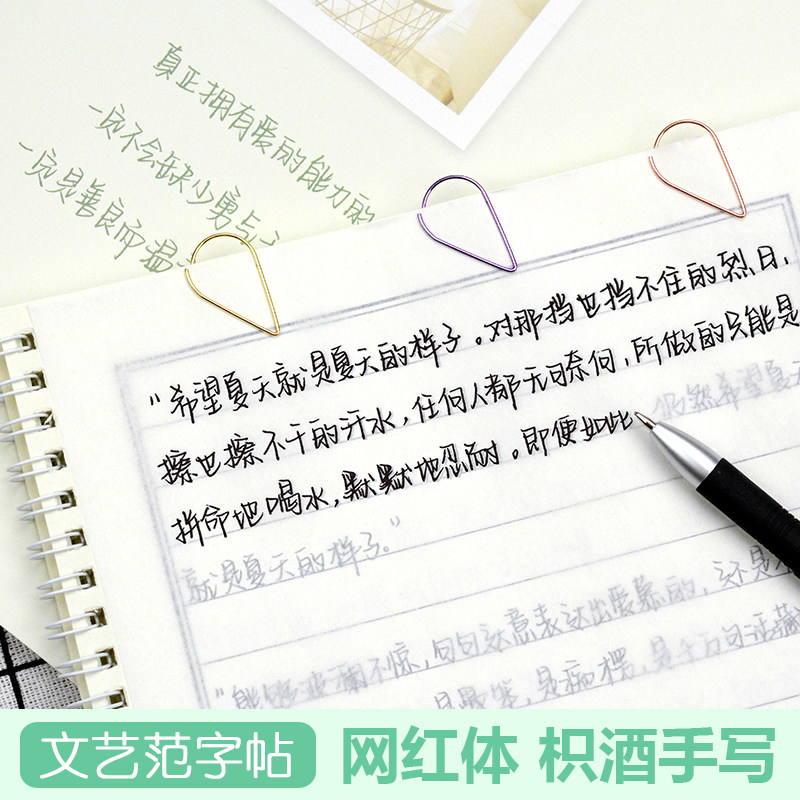 真正拥有爱的能力的
一定不会缺少勇与
一定是善良而温
“希望夏天就是夏天的样子。对那挡也挡不住的烈日，
擦也擦不干的汗水，任何人都无可奈何，所做的只能是
拼命地喝水，默默地忍耐。即便如此，仍然希望夏天
就是夏天的样子。”
句句达意表达出爱慕的，还是
是痴楞，是千万句话藏
文艺范字帖 网红体 枳酒手写